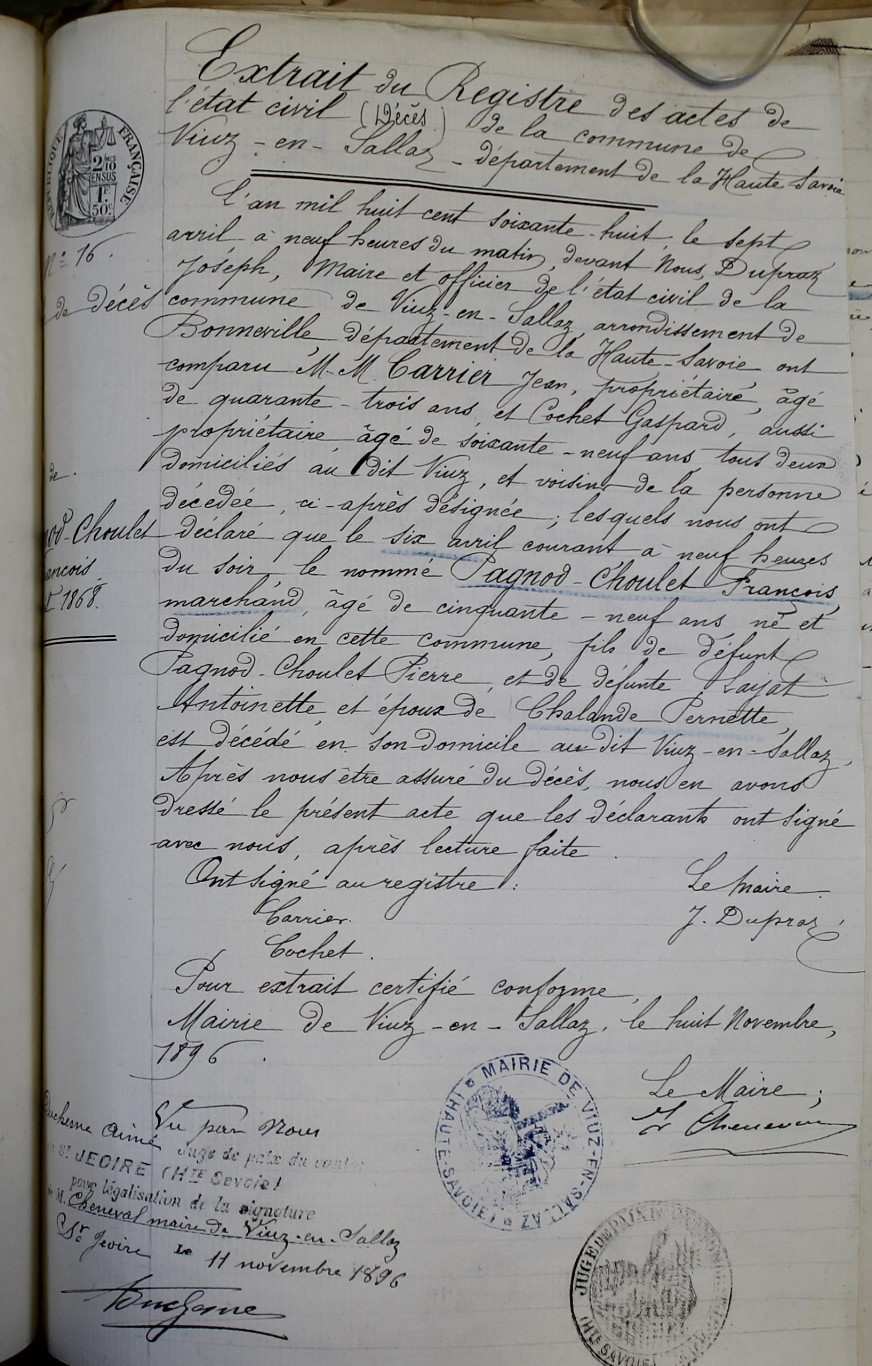 Extrait du Registre des actes de
l'état civil (Décès) de la commune de
Viuz-en-Sallaz - département de la Haute Savoie
RÉPUBLIQUE FRANÇAISE
2/10 EN SUS
1F 50c
L'an mil huit cent soixante-huit, le sept
avril à neuf heures du matin, devant Nous, Dupraz
Nº 16.
Joseph, Maire et officier de l'état civil de la
de décès
commune de Viuz-en-Sallaz, arrondissement de
Bonneville, département de la Haute-Savoie ont
comparu M.M. Carrier Jean, propriétaire, âgé
de quarante-trois ans, et Cochet Gaspard, aussi
propriétaire âgé de soixante-neuf ans, tous deux
domiciliés au dit Viuz, et voisins de la personne
de.
décédée, ci-après désignée; lesquels nous ont
-Choulet
déclaré que le six avril courant à neuf heures
du soir, le nommé Pagnod-Choulet François,
1868.
marchand, âgé de cinquante-neuf ans né et
domicilié en cette commune, fils de défunt
Pagnod-Choulet Pierre, et de défunte Layat
Antoinette, et époux de Chalande Pernette,
est décédé en son domicile au dit Viuz-en-Sallaz,
Après nous être assuré du décès, nous en avons
dressé le présent acte que les déclarants ont signé
avec nous, après lecture faite.
Ont signé au registre :
Le Maire
Carrier.
J. Dupraz
Cochet.
Pour extrait certifié conforme,
Mairie de Viuz-en-Sallaz, le huit Novembre,
1896.
Le Maire;
MAIRIE DE VIUZ-EN-SALLAZ
(HAUTE-SAVOIE)
Ducherne Aimé Vu par Nous
Juge de paix du canton
St JEOIRE (Hte Savoie)
pour légalisation de la signature
M. Cheneval maire de Viuz-en-Sallaz
St Jeoire Le 11 novembre 1896
JUGE DE PAIX DU
(Hte SAVOIE)